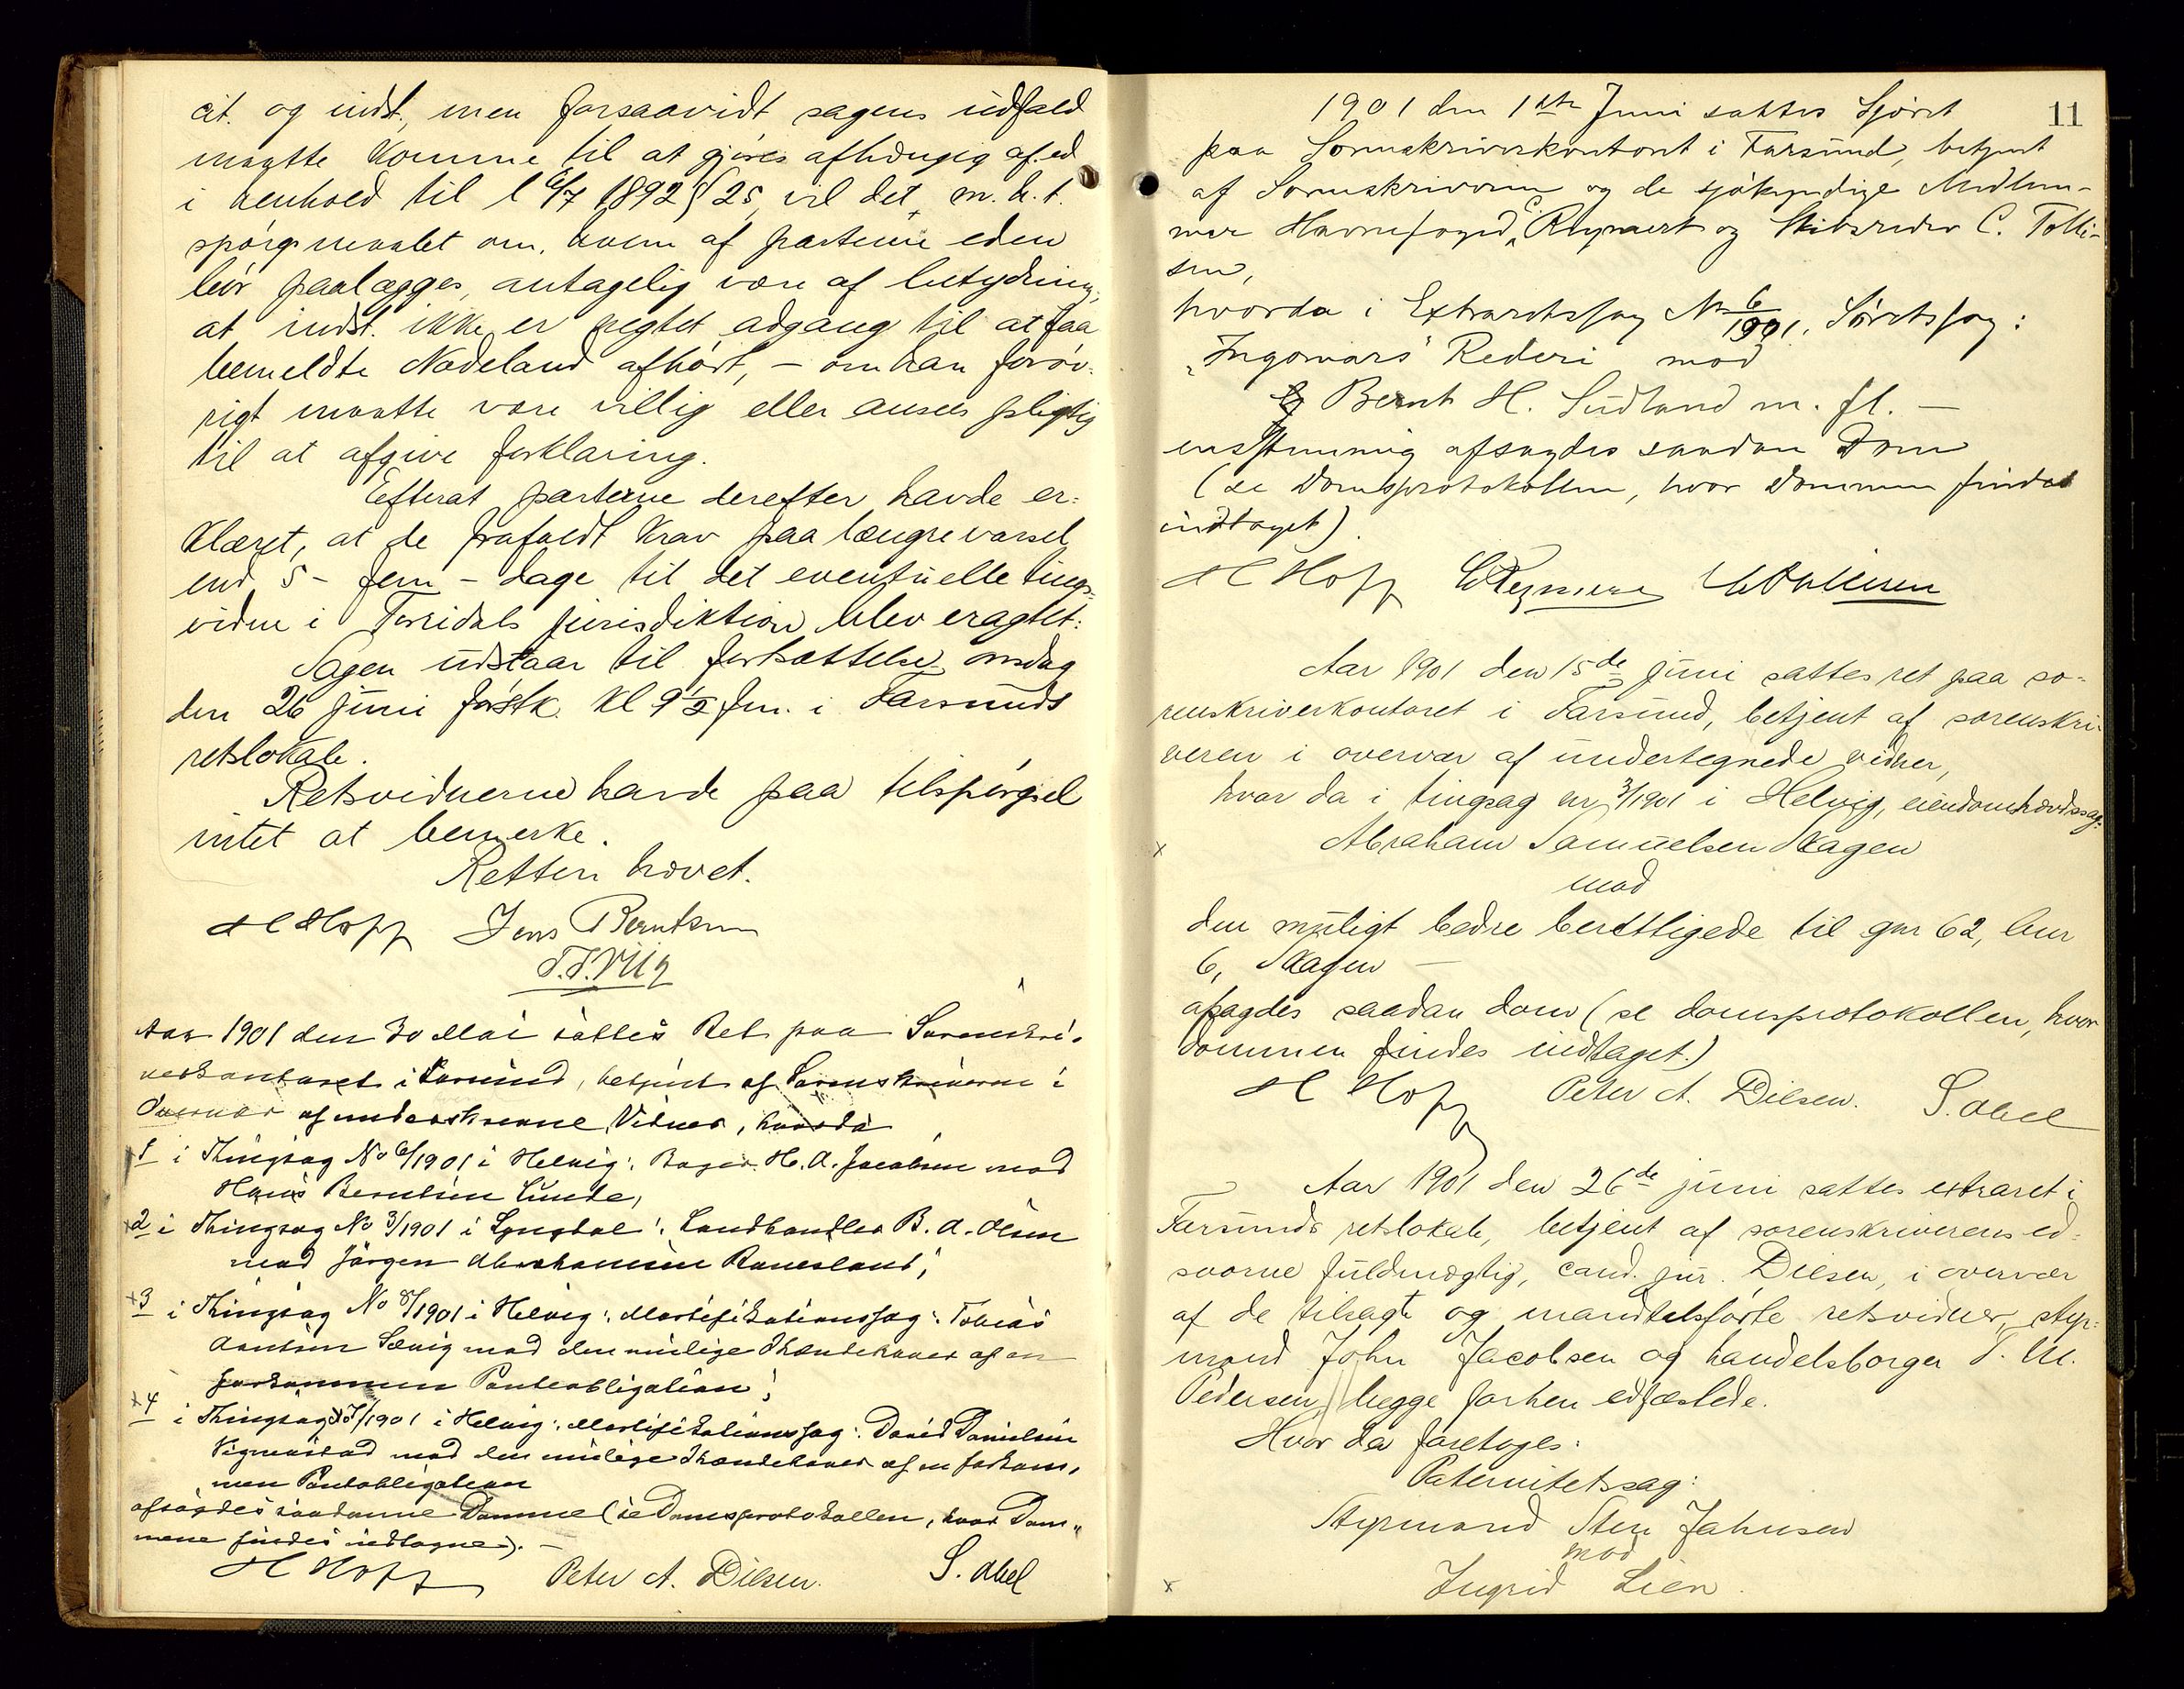 cit. og indst., men forsaavidt sagens udfald
maatte komme til at gjøres afhængig af ed
i henhold til l 6/7 1892 § 25, vil det, m. h. t.
spørgsmaalet om, hvem af parterne eden
bør paalægges, antagelig være af betydning,
at indst. ikke er negtet adgang til at faa
bemeldte Nodeland afhørt, – om han forøv-
rigt maatte være villig eller ansees pligtig
til at afgive forklaring.
Efterat parterne derefter havde er-
klæret, at de frafaldt krav paa længre varsel
end 5 – fem – dage til det eventuelle tings-
vidne i Torridals jurisdiktion blev eragtet:
Sagen udstaar til fortsættelse onsdag
den 26 juni førstk. kl 9 1/2 fm. i Farsunds
retslokale.
Retsvidnerne havde paa tilspørgsel
intet at bemerke.
Retten hævet.
H Hopp Jens Berntsen
Aar 1901 den 30 Mai sattes Ret paa Sorenskri-
verkontoret i Farsund, betjent af Sorenskriveren i
Overvær af underskrevne Vidner, hvorda
1 i Thingsag No 6/1901 i Helvig: Bager H. A. Jacobsen mod
Hans Berntsen Lunde,
x2 i Thingsag No 3/1901 i Lyngdal: Landhandler B. A. Olsen
mod Jørgen Abrahamsen Rameslant;
x3 i Thingsag No 8/1901 i Helvig: Mortifikationssag: Tobias
Arntsen Sævig mod den mulige Ihændehaver af en
forkommen Panteobligation;
x4 i Thingsag No 7/1901 i Helvig: Mortifikationssag: David Danielsen
Vigmostad mod den mulige Ihændehaver af en forkom-
men Pantobligation
afsagdes saadanne Domme (se Domsprotokollen, hvor Dom-
mene findes indtagne). –
H Hopp Peter A. Dilsen. S. Abel
11
1901 den 1ste Juni sattes Sjøret
paa Sorenskriverkontoret i Farsund, betjent
af Sorenskriveren og de sjøkyndige Medlem-
mer Havnefoged C. Reymert og Skibsreder C. Tolli-
sen,
hvorda i Extraretssag No 6/1901, Sjøretssag:
"Ingomars" Rederi mod
Bernt H. Sudland m. fl. –
enstemmig afsagdes saadan Dom
(se Domsprotokollen, hvor Dommen findes
indtaget).
H Hopp C Reymert C Tollisen
Aar 1901 den 15de juni sattes ret paa so-
renskriverkontoret i Farsund, betjent af sorenskri-
veren i overvær af undertegnede vidner,
hvor da i tingsag nr 3/1901 i Helvig, eiendomshævdssag:
x Abraham Samuelsen Skagen
mod
den muligt bedre berettigede til gnr 62, bnr
6, Skagen –
afsagdes saadan dom (se domsprotokollen, hvor
dommen findes indtaget.)
H Hopp Peter A. Dilsen. S. Abel
Aar 1901 den 26de juni sattes extraret i
Farsunds retslokale, betjent af sorenskriverens ed-
svorne fuldmægtig, cand. jur. Dilsen, i overvær
af de tilsagt og mandtalsførte retsvidner, styr-
mand John Jacobsen og handelsborger T. M.
Pedersen, begge forhen edfæstede.
Hvor da foretoges:
Paternitetssag:
Styrmand Sten Jahnsen
mod
x Ingrid Lien.